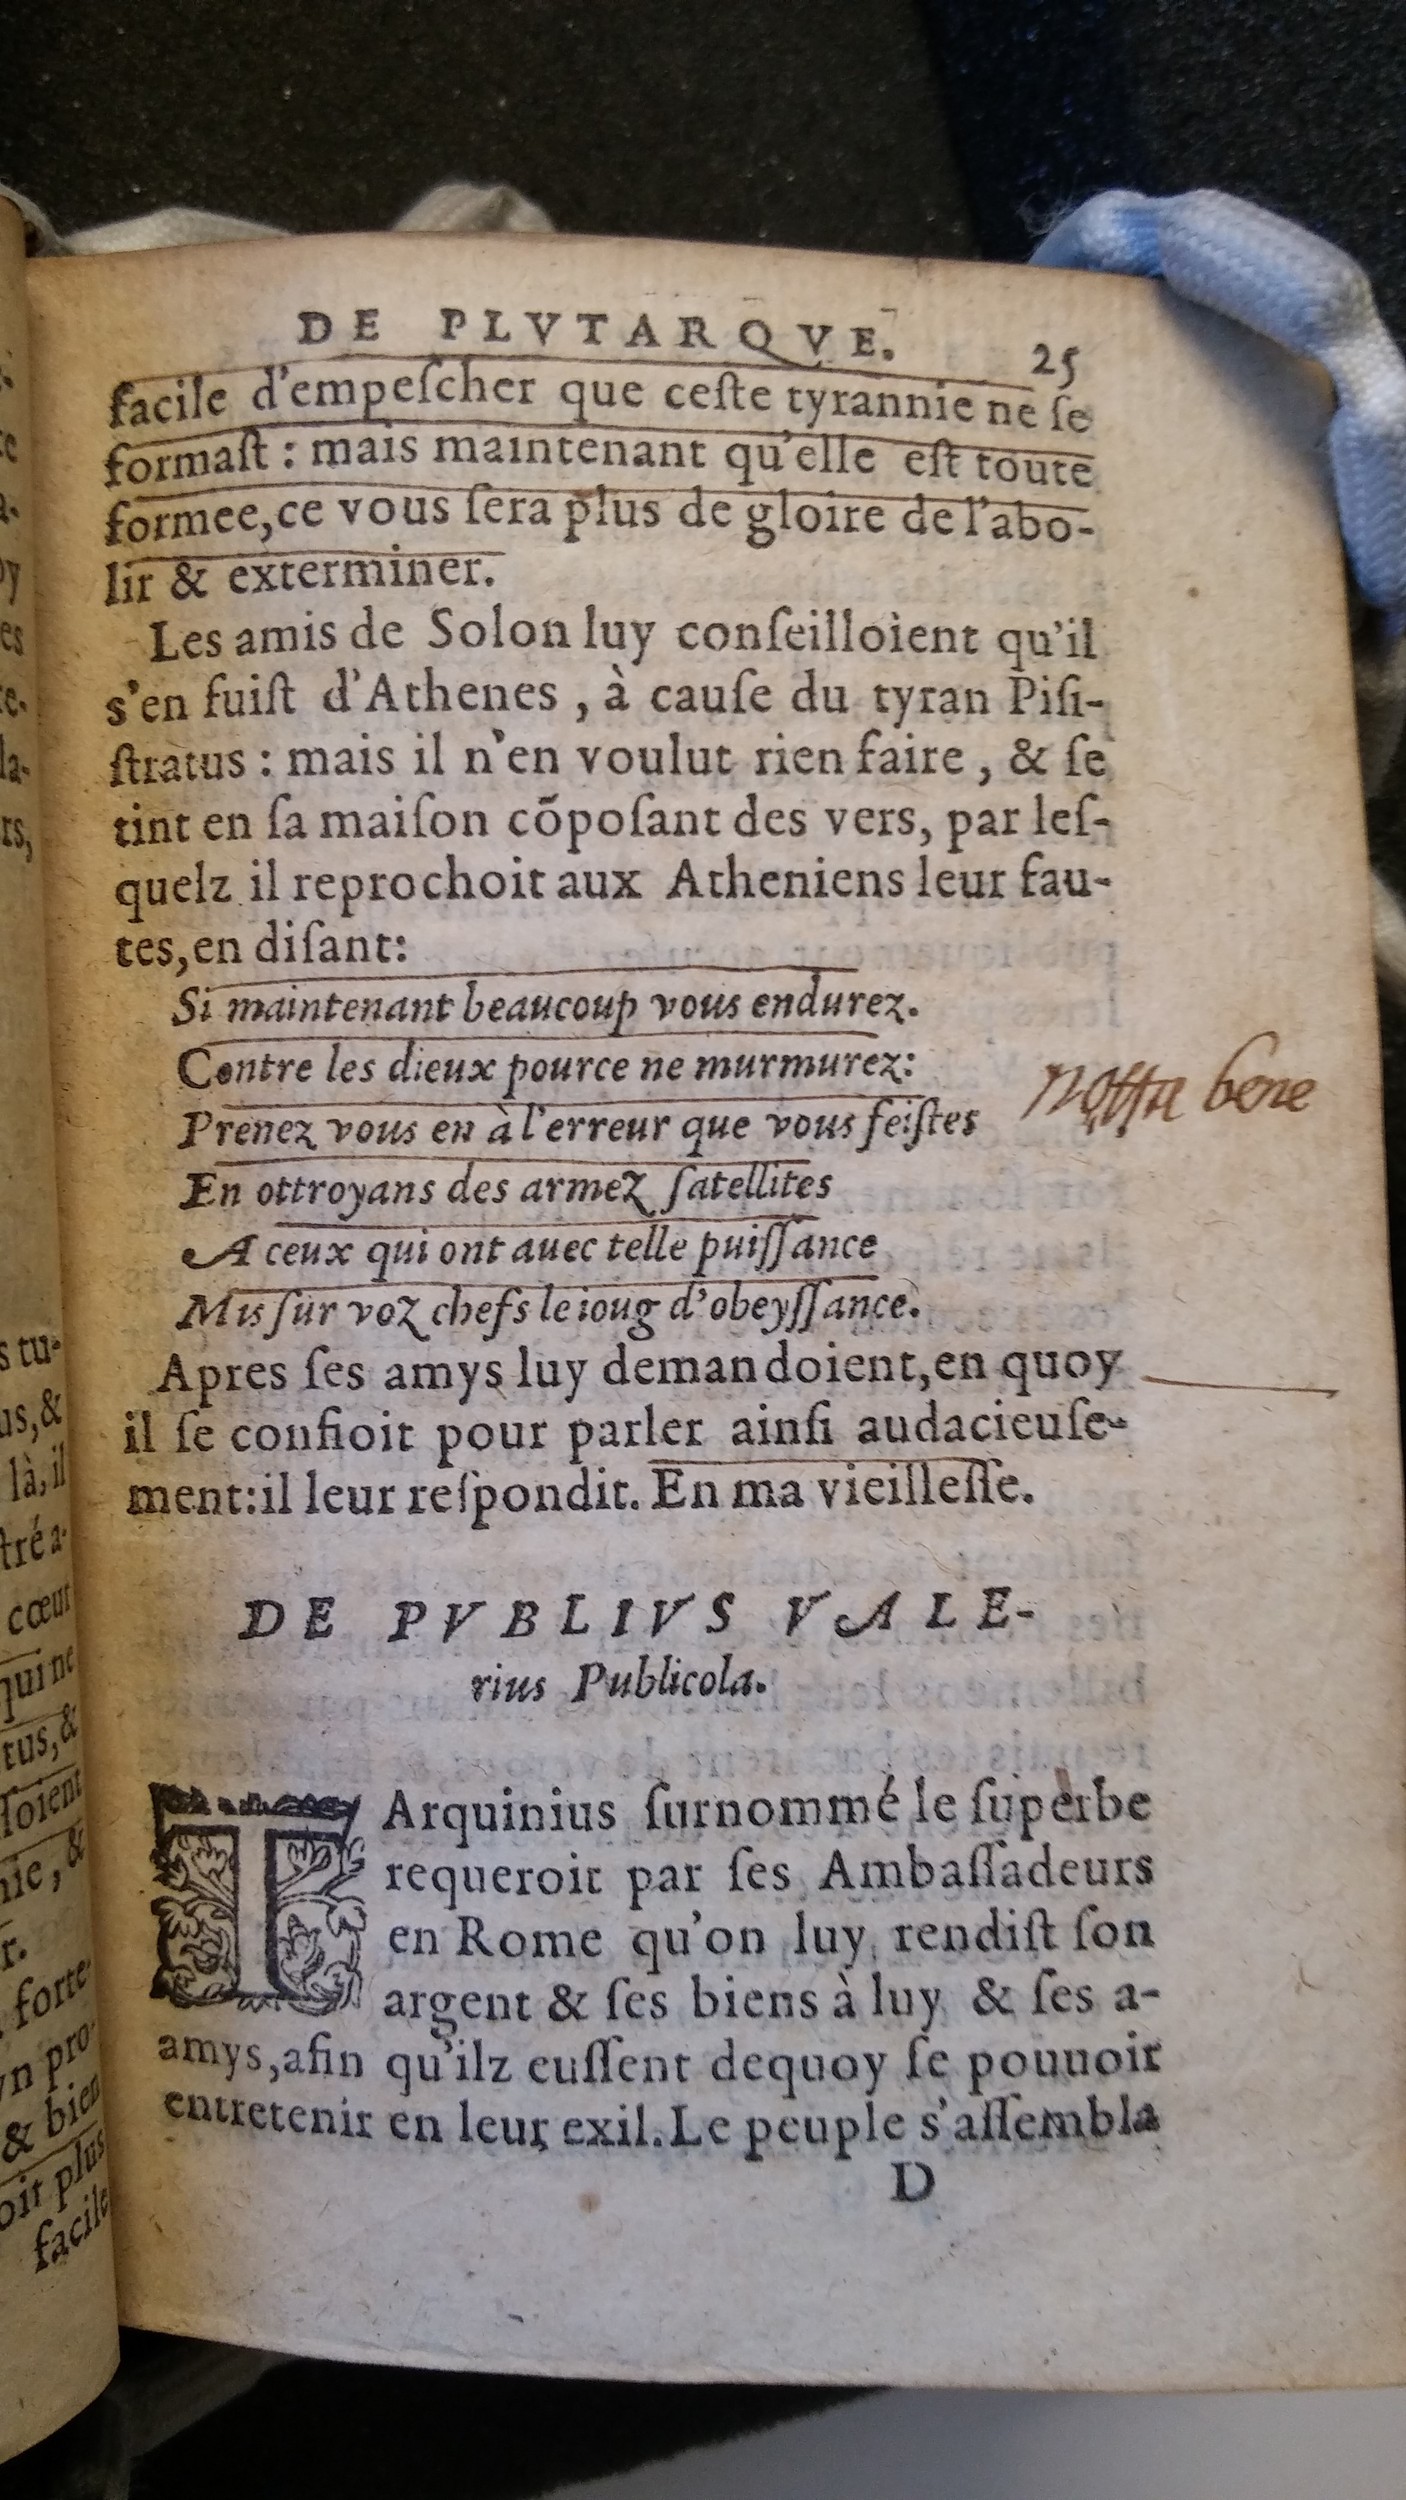 DE PLVTARQVE.
25
facile d'empeſcher que ceſte tyrannie ne ſe
formaſt : mais maintenant qu'elle eſt toute
formee,ce vous ſera plus de gloire de l'abo-
lir & exterminer.
Les amis de Solon luy conſeilloient qu'il
s'en fuiſt d'Athenes , à cauſe du tyran Piſi-
ſtratus : mais il n'en voulut rien faire , & ſe
tint en ſa maiſon cõpoſant des vers, par leſ-
quelz il reprochoit aux Atheniens leur fau-
tes,en diſant:
Si maintenant beaucoup vous endurez.
Contre les dieux pource ne murmurez:
Prenez vous en à l'erreur que vous feiſtes
En ottroyans des armez ſatellites
A ceux qui ont auec telle puiſſance
Mis ſur voz chefs le ioug d'obeyſſance.
Notta bene
Apres ſes amys luy demandoient,en quoy
il ſe confioit pour parler ainſi audacieuſe-
ment:il leur reſpondit. En ma vieilleſſe.
DE PVBLIVS VALE-
rius Publicola.
TArquinius ſurnommé le ſuperbe
requeroit par ſes Ambaſſadeurs
en Rome qu'on luy rendiſt ſon
argent & ſes biens à luy & ſes a-
amys,afin qu'ilz euſſent dequoy ſe pouuoir
entretenir en leur exil.Le peuple s'aſſembla
D
s tu-
us,&
là,il
ſtré a-
cœur
qui ne
tus,&
ſoient
nie, &
r.
forte-
vn pro-
& bien
oit plus
facile